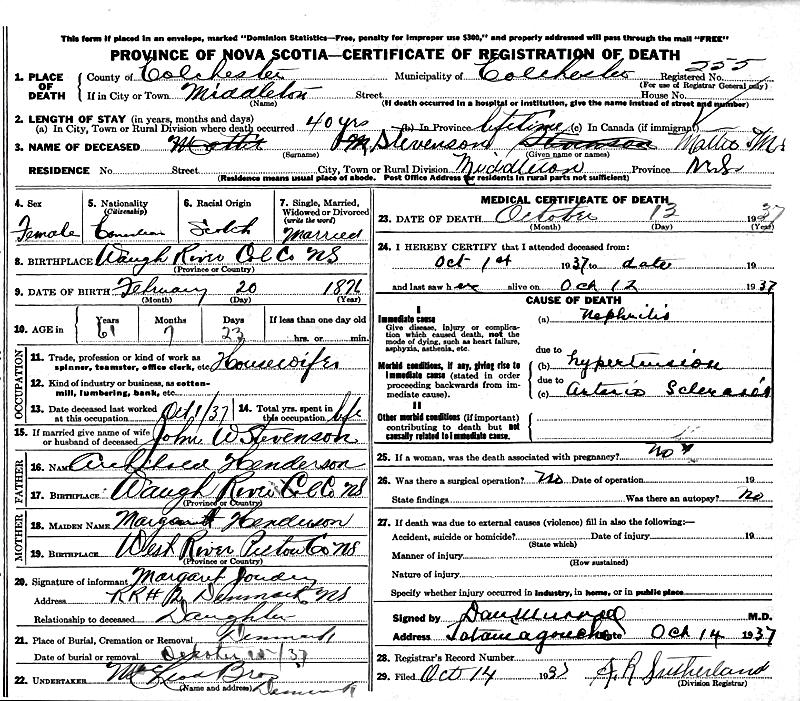 This form if placed in an envelope, marked "Dominion Statistics—Free, penalty for improper use $300," and properly addressed will pass through the mail "FREE"
PROVINCE OF NOVA SCOTIA—CERTIFICATE OF REGISTRATION OF DEATH
1. PLACE OF DEATH County of Colchester Municipality of Colchester Registered No. 255
(For use of Registrar General only)
If in City or Town Middleton Street House No.
(Name) (If death occurred in a hospital or institution, give the name instead of street and number)
2. LENGTH OF STAY (in years, months and days)
(a) In City, Town or Rural Division where death occurred 40 yrs (b) In Province lifetime (c) In Canada (if immigrant)
3. NAME OF DECEASED Stevenson Stevenson Mattie
(Surname) (Given name or names)
RESIDENCE No. Street City, Town or Rural Division Middleton Province N.S.
(Residence means usual place of abode. Post Office Address for residents in rural parts not sufficient)
4. Sex Female
5. Nationality (Citizenship) Canadian
6. Racial Origin Scotch
7. Single, Married, Widowed or Divorced (write the word) Married
8. BIRTHPLACE Waugh River Col Co NS
(Province or Country)
9. DATE OF BIRTH February 20 1876
(Month) (Day) (Year)
10. AGE in Years 61 Months 7 Days 23 If less than one day old hrs. or min.
OCCUPATION
11. Trade, profession or kind of work as spinner, teamster, office clerk, etc. Housewife
12. Kind of industry or business, as cotton-mill, lumbering, bank, etc.
13. Date deceased last worked at this occupation Oct 1/37 14. Total yrs. spent in this occupation life
15. If married give name of wife or husband of deceased John W Stevenson
FATHER
16. NAME Henderson
17. BIRTHPLACE Waugh River Col Co NS
(Province or Country)
MOTHER
18. MAIDEN NAME Margaret Henderson
19. BIRTHPLACE West River Pictou Co NS
(Province or Country)
20. Signature of informant Margaret
Address Denmark NS
Relationship to deceased Daughter
21. Place of Burial, Cremation or Removal Denmark
Date of burial or removal October /37
22. UNDERTAKER Bros
(Name and address) Denmark
MEDICAL CERTIFICATE OF DEATH
23. DATE OF DEATH October 13 1937
(Month) (Day) (Year)
24. I HEREBY CERTIFY that I attended deceased from:
Oct 1st 1937 to date 19
and last saw her alive on Oct 12 1937
CAUSE OF DEATH
I
Immediate cause
Give disease, injury or complication which caused death, not the mode of dying, such as heart failure, asphyxia, asthenia, etc.
(a) Nephritis
due to
Morbid conditions, if any, giving rise to immediate cause (stated in order proceeding backwards from immediate cause).
(b) hypertension
due to
(c) arterio Sclerosis
II
Other morbid conditions (if important) contributing to death but not causally related to immediate cause.
25. If a woman, was the death associated with pregnancy? no
26. Was there a surgical operation? No Date of operation 19
State findings Was there an autopsy? no
27. If death was due to external causes (violence) fill in also the following:—
Accident, suicide or homicide? Date of injury 19
(State which)
Manner of injury
(How sustained)
Nature of injury
Specify whether injury occurred in industry, in home, or in public place
Signed by Dan Murray M.D.
Address Tatamagouche Date Oct 14 1937
28. Registrar's Record Number
29. Filed Oct 14 1937 Sutherland
(Division Registrar)